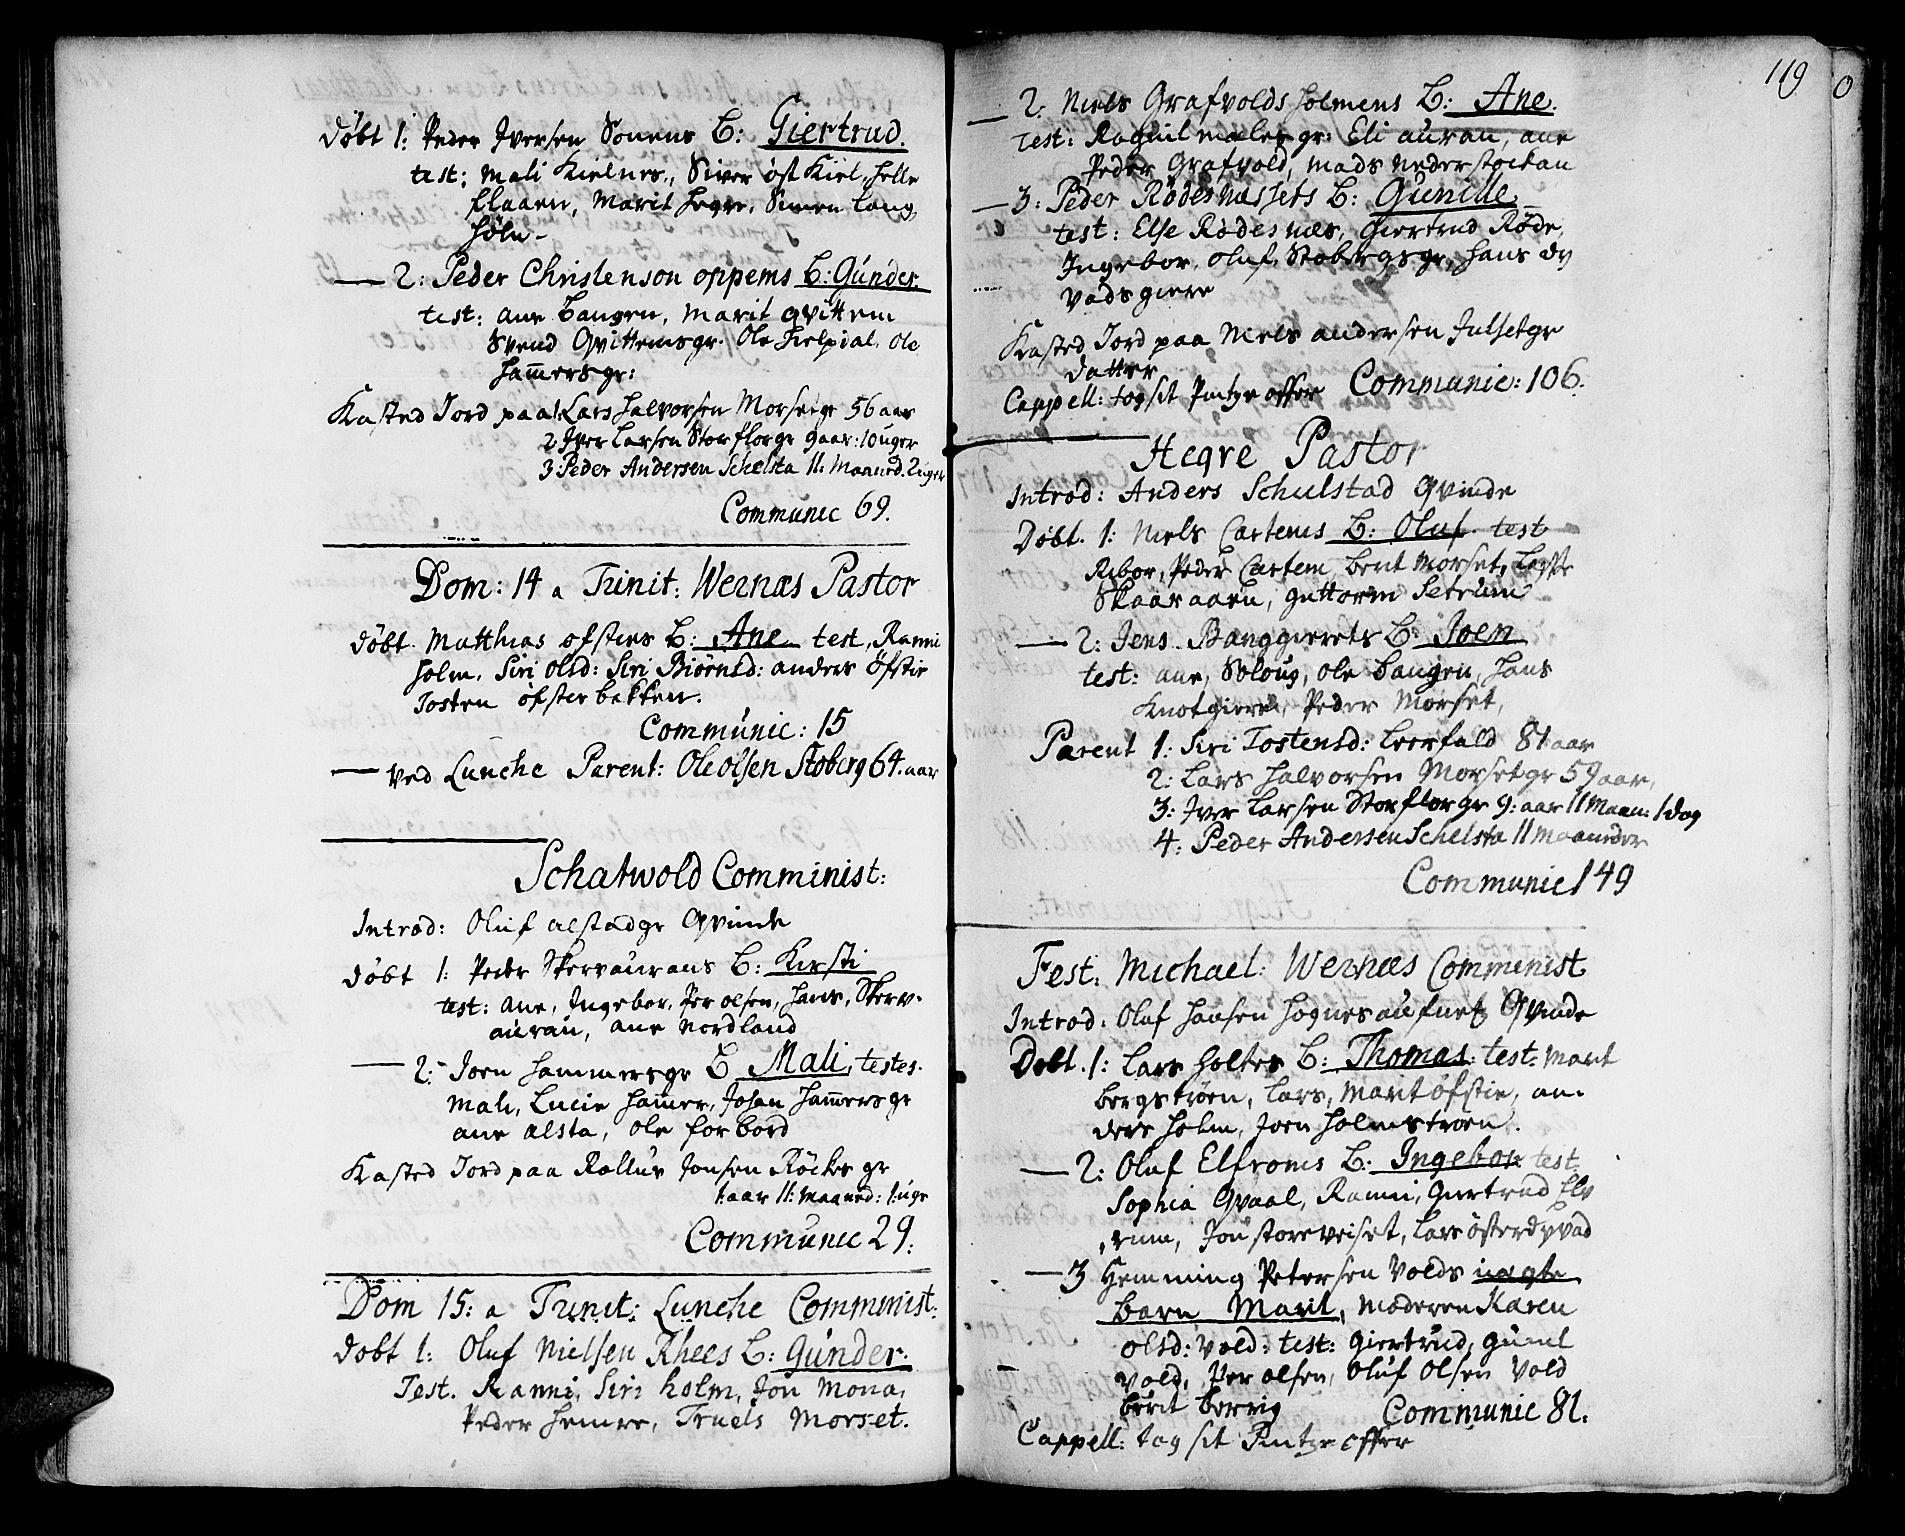 Døbt 1: Peder Iversen Sonens B: Giertrud.
test: Mali Kielnes, Siver øst Kiel, Helle
flaaen, Marit Hegre, Simen Lang
Høln -
— 2: Peder Christenson oppems B: Gunder.
test: Ane Bangen, Marit Qvittem
Svend Qvittemsgr. Ole Fielpial. Ole
Ham̅ersgr:
Kasted Jord paa 1. Lars Halvorsen Morsetgr 56 aar
2 Iver Larsen Storflorgr 9 aar: 10 uger
3: Peder Andersen Schelsta 11. Maaned. 2 uger
Communic 69.
Dom: 14 a Trinit: Wernæs Pastor
Døbt. Matthias ofsties B: Ane test, Ranni
Holm. Siri Olsd: Siri Biørnsd: anders Øfstie
Tosten øfsterbekken.
Communic: 15
— ved Lunche Parent: Ole Olsen Stoberg 64. aar
Schatwold Comminist:
Introd: Oluf alstadgr Qvinde
Døbt 1: Peder Skervaurans B: Kirsti
test: Ane, Ingebor, Per olsen, Hans, Skerv-
auran, ane Nordland
— 2: Joen Hammersgr B Mali, testes.
Mali, Lucie Ham̅er, Johan Ham̅ersgr
ane alsta, ole forbord
Kasted Jord paa Rællus Jonsen Röckesgr
1: aar 11: Maaned: 1: uge
Communic 29.
Dom 15: a Trinit: Lunche Comminist:
Døbt 1: Oluf Nielsen Rhees B: Gunder.
Test. Ranni, Siri holm, Jon Mona,
Peder Hemre, Truels Morset.
119
0
— 2. Niels Grafvoldsholmens B: Ane.
Test: Ragnil mælegr: Eli auran, ane
Peder Grafvold, Mads Nederstockan
— 3: Peder Rødesnæssets B: Gunille
test: Else Rødesnæs, Giertrud Røde,
Ingebor, Oluf Stobergsgr, Hans Dy
Vadsgiere
Kasted Jord paa Niels andersen Julsetgr
datter
Cappell: tog sit Pintze offer Communic: 106.
Hegre Pastor
Introd: Anders Schulstad Qvinde
Døbt. 1: Niels Cartems B: Oluf. test
Rebor, Peder Cartem, berit Morset,
Skaaraaen, guttorm Setrum
— 2: Jens Banggierets B: Joen
test: ane, Soloug, Ole bangen, Hans
Knotgieret, Peder Morset,
Parent 1: Siri Tostensd: Leerfald 81 aar
2: Lars Halvorsen Morsetgr 59 aar,
3: Iver Larsen Storflorgr 9: aar 11 Maan: 1 dag
4: Peder Andersen Schelsta 11 maaneder
Communic 149
Fest. Michael: Wernæs Comminist
Introd: Oluf Hansen Hognesaufnet Qvinde
Døbt. 1: Lars Holtes B: Thomas: test: Marit
bergstrøen, Lars, Marit øfstie, an-
ders Holm, Joen Holmstroen.
— 2: Oluf Elfroms B: Ingebor. test:
Sophia Qvaal, Ranni, Giertrud Elv
rum, Jon storeveiset, Lars østerdyvad
— 3 Hemming Petersen Volds uægte
barn Marit, Moderen Karen
Olsd: Vold: test: Giertrud, Gunil
Vold, Per olsen, Oluf Olsen Vold
berit berrig Communic 81.
Cappell: tog sit Pintze offer